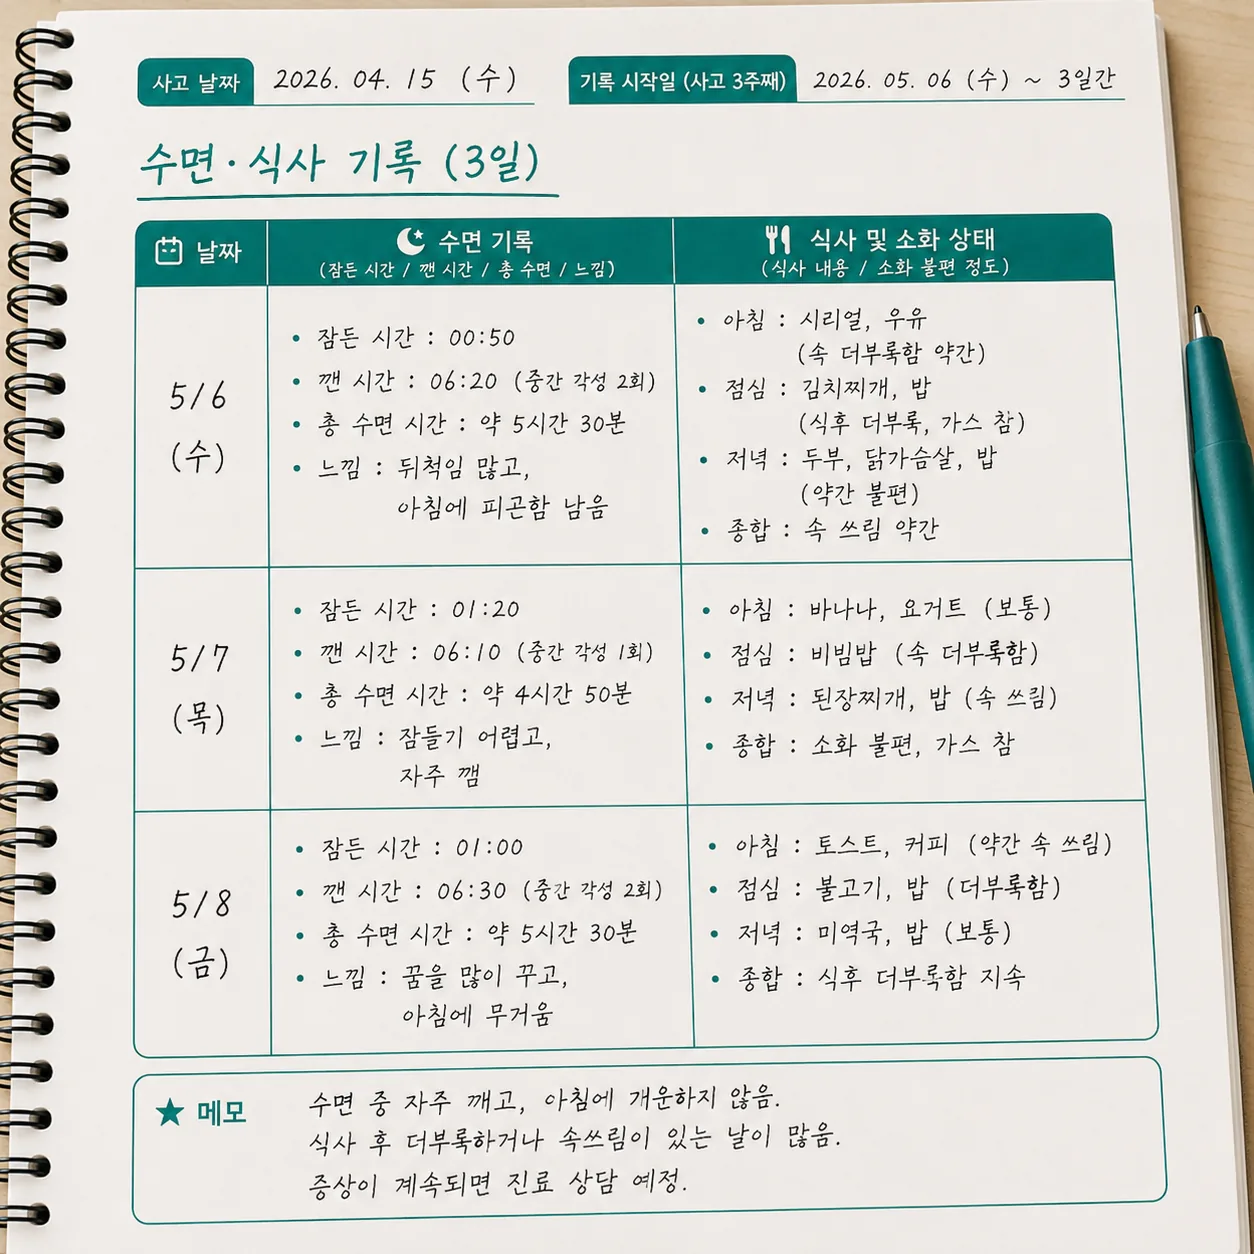 사고 날짜 2026. 04. 15 (수)
기록 시작일 (사고 3주째) 2026. 05. 06 (수) ~ 3일간
수면·식사 기록 (3일)
날짜
수면 기록
(잠든 시간 / 깬 시간 / 총 수면 / 느낌)
식사 및 소화 상태
(식사 내용 / 소화 불편 정도)
5/6
(수)
• 잠든 시간 : 00:50
• 깬 시간 : 06:20 (중간 각성 2회)
• 총 수면 시간 : 약 5시간 30분
• 느낌 : 뒤척임 많고,
아침에 피곤함 남음
• 아침 : 시리얼, 우유
(속 더부룩함 약간)
• 점심 : 김치찌개, 밥
(식후 더부룩, 가스 참)
• 저녁 : 두부, 닭가슴살, 밥
(약간 불편)
• 종합 : 속 쓰림 약간
5/7
(목)
• 잠든 시간 : 01:20
• 깬 시간 : 06:10 (중간 각성 1회)
• 총 수면 시간 : 약 4시간 50분
• 느낌 : 잠들기 어렵고,
자주 깸
• 아침 : 바나나, 요거트 (보통)
• 점심 : 비빔밥 (속 더부룩함)
• 저녁 : 된장찌개, 밥 (속 쓰림)
• 종합 : 소화 불편, 가스 참
5/8
(금)
• 잠든 시간 : 01:00
• 깬 시간 : 06:30 (중간 각성 2회)
• 총 수면 시간 : 약 5시간 30분
• 느낌 : 꿈을 많이 꾸고,
아침에 무거움
• 아침 : 토스트, 커피 (약간 속 쓰림)
• 점심 : 불고기, 밥 (더부룩함)
• 저녁 : 미역국, 밥 (보통)
• 종합 : 식후 더부룩함 지속
★ 메모
수면 중 자주 깨고, 아침에 개운하지 않음.
식사 후 더부룩하거나 속쓰림이 있는 날이 많음.
증상이 계속되면 진료 상담 예정.